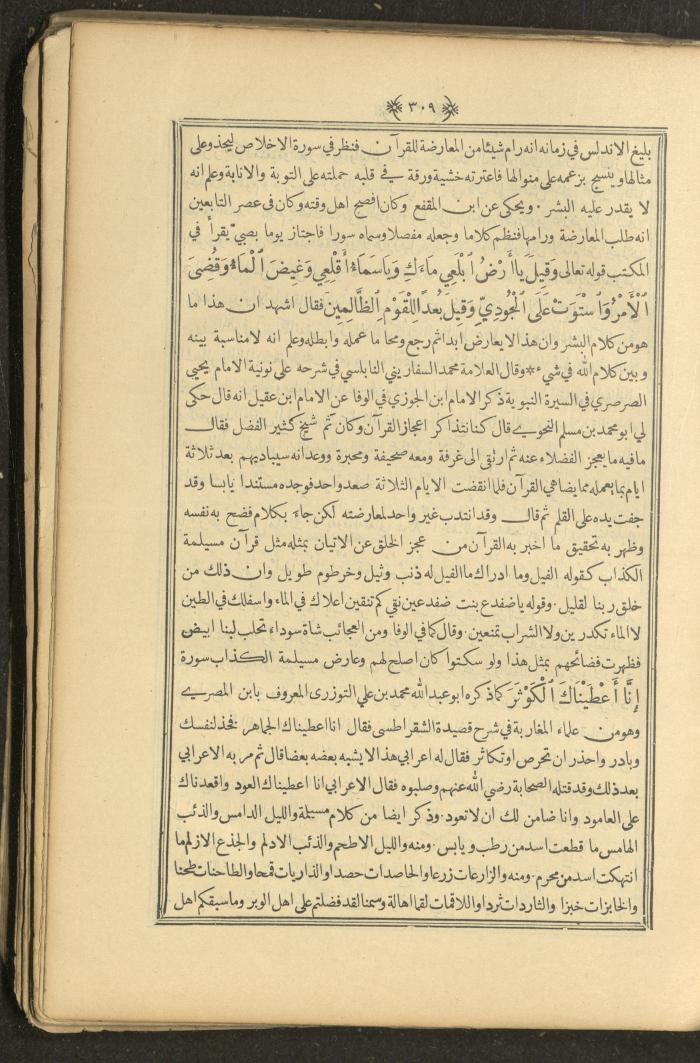 ٣٠٩
بليغ الاندلس في زمانه انه رام شيئا من المعارضة للقرآن فنظر في سورة الاخلاص ليحذو على
مثالها وينسج بزعمه على منوالها فاعترته خشية ورقة في قلبه حملته على التوبة والانابة وعلم انه
لا يقدر عليه البشر . ويحكى عن ابن المقفع وكان افصح اهل وقته وكان في عصر التابعين
انه طلب المعارضة ورامها فنظم كلاما وجعله مفصلا وسماه سورا فاجتاز يوما بصبيّ يقرأ في
المكتب قوله تعالى وَقِيلَ يَا أَرْضُ ٱبْلَعِي مَاءَكِ وَيَا سَمَاءُ أَقْلِعِي وَغِيضَ ٱلْمَاءُ وَقُضِيَ
ٱلْأَمْرُ وَٱسْتَوَتْ عَلَى ٱلْجُودِيِّ وَقِيلَ بُعْدًا لِلْقَوْمِ ٱلظَّالِمِينَ فقال اشهد ان هذا ما
هو من كلام البشر وان هذا لا يعارض ابدا ثم رجع ومحا ما عمله وابطله وعلم انه لا مناسبة بينه
وبين كلام الله في شيء * وقال العلامة محمد السفاريني النابلسي في شرحه على نونية الامام يحيى
الصرصري في السيرة النبوية ذكر الامام ابن الجوزي في الوفا عن الامام ابن عقيل انه قال حكى
لي ابو محمد بن مسلم النحوي قال كنا نتذاكر اعجاز القرآن وكان ثم شيخ كثير الفضل فقال
ما فيه ما يعجز الفضلاء عنه ثم ارتقى الى غرفة ومعه صحيفة ومحبرة ووعد انه سيباديهم بعد ثلاثة
ايام بما يعمله مما يضاهي القرآن فلما انقضت الايام الثلاثة صعد واحد فوجده مستندا يابسا وقد
جفت يده على القلم ثم قال وقد انتدب غير واحد لمعارضته لكن جاء بكلام فضح به نفسه
وظهر به تحقيق ما اخبر به القرآن من عجز الخلق عن الاتيان بمثله مثل قرآن مسيلمة
الكذاب كقوله الفيل وما ادراك ما الفيل له ذنب وثيل وخرطوم طويل وان ذلك من
خلق ربنا لقليل . وقوله يا ضفدع بنت ضفدعين نقي كم تنقين اعلاك في الماء واسفلك في الطين
لا الماء تكدرين ولا الشراب تمنعين . وقال كما في الوفا ومن العجائب شاة سوداء تحلب لبنا ابيض
فظهرت فضائحهم بمثل هذا ولو سكتوا كان اصلح لهم وعارض مسيلمة الكذاب سورة
إِنَّا أَعْطَيْنَاكَ ٱلْكَوْثَرَ كما ذكره ابو عبد الله محمد بن علي التوزري المعروف بابن المصري
وهو من علماء المغاربة في شرح قصيدة الشقراطسي فقال انا اعطيناك الجماهر فخذ لنفسك
وبادر واحذر ان تحرص او تكاثر فقال له اعرابي هذا لا يشبه بعضه بعضا قال ثم مر به الاعرابي
بعد ذلك وقد قتله الصحابة رضي الله عنهم وصلبوه فقال الاعرابي انا اعطيناك العود واقعدناك
على العامود وانا ضامن لك ان لا تعود . وذكر ايضا من كلام مسيلمة والليل الدامس والذئب
الهامس ما قطعت اسد من رطب ويابس . ومنه والليل الاطحم والذئب الادلم والجذع الازلم ما
انتهكت اسد من محرم . ومنه والزارعات زرعا والحاصدات حصدا والذاريات قمحا والطاحنات طحنا
والخابزات خبزا والثاردات ثردا واللاقمات لقما اهالة وسمنا لقد فضلتم على اهل الوبر وما سبقكم اهل